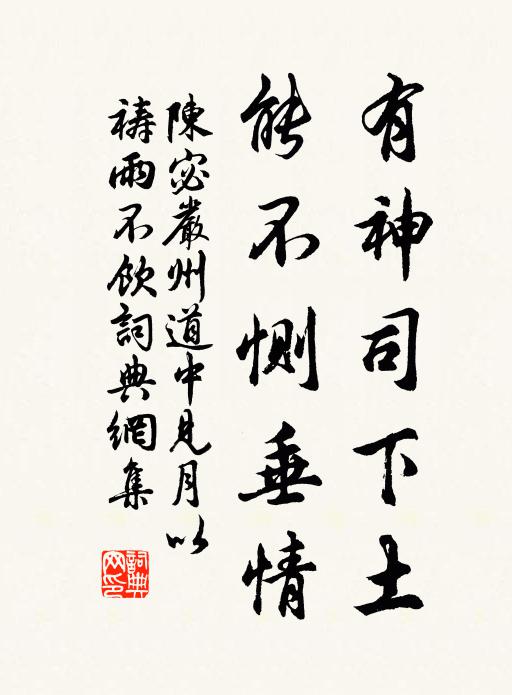 有神司下土
能不惻垂情
陳宓嚴州道中見月以
禱雨不飲詞典網集
詞典網印